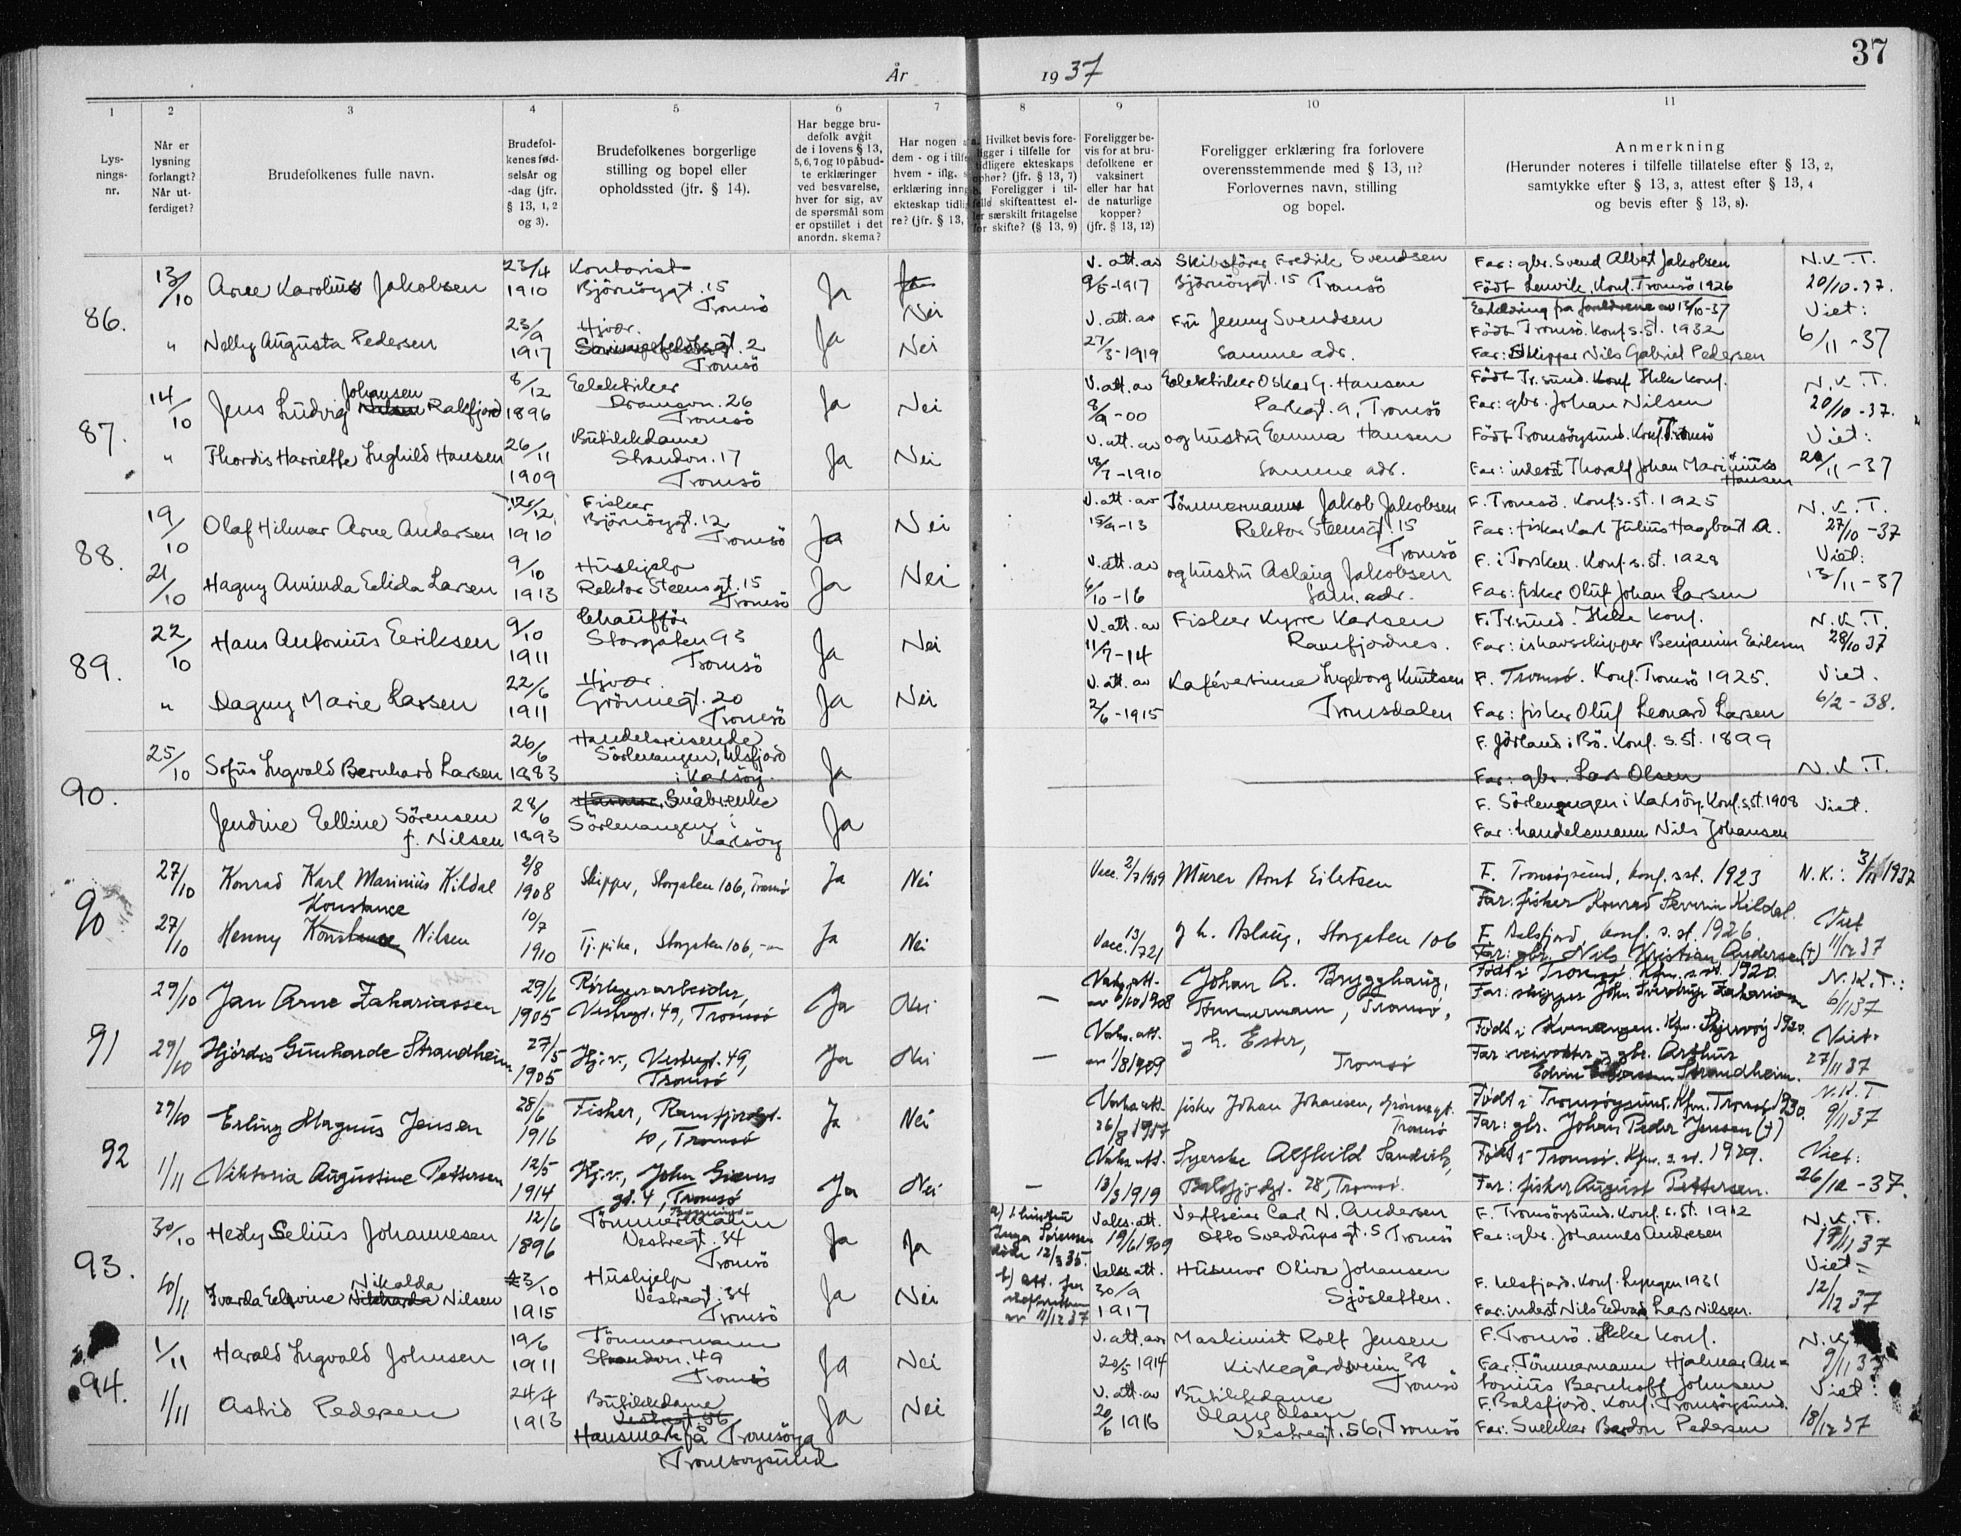 37
År 1937
1 2 3 4 5 6 7 8 9 10 11
Lys-
nings-
nr.
Når er
lysning
forlangt?
Når ut-
ferdiget?
Brudefolkenes fulle navn.
Brudefol-
kenes fød-
selsår og
-dag (jfr.
§ 13, 1, 2
og 3).
Brudefolkenes borgerlige
stilling og bopel eller
opholdssted (jfr. § 14).
Har begge bru-
defolk avgit
de i lovens § 13,
5, 6, 7 og 10 påbud-
te erklæringer
ved besvarelse,
hver for sig, av
de spørsmål som
er opstillet i det
anordn. skema?
Har nogen a
dem - og i tilfe
hvem - iflg. s
erklæring inng
ekteskap tidli
re? (jfr. § 13,
Hvilket bevis fore-
ligger i tilfelle for
tidligere ekteskaps
ophør? (jfr. § 13, 7)
b. Foreligger i til-
felle skifteattest el-
ler særskilt fritagelse
for skifte? (§ 13, 9)
Foreligger be-
vis for at bru-
defolkene er
vaksinert
eller har hat
de naturlige
kopper?
(jfr. § 13, 12)
Foreligger erklæring fra forlovere
overensstemmende med § 13, 11?
Forlovernes navn, stilling
og bopel.
Anmerkning
(Herunder noteres i tilfelle tillatelse efter § 13, 2,
samtykke efter § 13, 3, attest efter § 13, 4
og bevis efter § 13, 8).
86.
13/10 Arne Karolius Jakobsen 23/4 1910 Kontorist Björnöygt. 15 Tromsö Ja Ja Nei
V. att. av 9/5-1917 Skibsförer Fredrik Svendsen Björnöygt. 15 Tromsö
Far: gbr. Svend Albert Jakobsen
Födt Lenvik. Konf. Tromsö 1926
Erklæring fra foreldrene av 13/10-37
N.K.T. 20/10-37.
" Nelly Augusta Pedersen 23/9 1917 Hjvær. 2 Tromsö Ja Nei
V. att. av 27/3-1919 Fru Jenny Svendsen samme adr.
Födt Tromsö. Konf. s. st. 1932
Far: Skipper Nils Gabriel Pedersen
Viet: 6/11-37
87.
14/10 Jens Ludvig Johansen Nilsen Rakfjord 8/12 1896 Eelektriker Dramsvn. 26 Tromsö Ja Nei
V. att. av 8/9-00 Eelektriker Oskar G. Hansen Parkgt. 9, Tromsö
Födt Tr.sund. Konf Ikke konf.
Far: gbr. Johan Nilsen
N.K.T. 20/10-37.
" Thordis Harriette Inghild Hansen 26/11 1909 Butikkdame Strandvn. 17 Tromsö Ja Nei
V. att. av 13/7-1910 og hustru Emma Hansen samme adr.
Födt Tromsöysund. Konf. Tromsö
Far: inderst Thoralf Johan Marinius Hansen
Viet: 20/11-37
88.
19/10 Olaf Hilmar Arne Andersen 26/12 1910 Fisker Björnöygt. 12 Tromsö Ja Nei
V. att. av 15/9-13 Tömmermann Jakob Jakobsen Rektor Steensgt. 15 Tromsö
F. Tromsö. Konf. s. st. 1925
Far: fisker Karl Julius Hagbart A.
N.K.T. 27/10-37
21/10 Hagny Aminda Eelida Larsen 9/10 1913 Hushjelp Rektor Steensgt. 15 Tromsö Ja Nei
V. att. av 6/10-16 og hustru Aslaug Jakobsen sam. adr.
F. i Torsken. Konf. s. st. 1928
Far: fisker Oluf Johan Larsen
Viet: 13/11-37
89.
22/10 Hans Antonius Eeriksen 9/10 1911 Chaufför Storgaten 93 Tromsö Ja Nei
V. att. av 11/7-14 Fisker Kyrre Karlsen Ramfjordnes.
F. Tr.sund. Ikke konf.
Far: ishavsskipper Benjamin Eriksen
N.K.T. 28/10 37
" Dagny Marie Larsen 22/6 1911 Hjvær Grönnegt. 20 Tromsö Ja Nei
V. att. av 2/6-1915 Kafévertinne Ingeborg Knutsen Tromsdalen
F. Tromsø. Konf. Tromsö 1925.
Far: fisker Oluf Leonard Larsen
Viet. 6/2-38.
90.
25/10 Sofus Ingvald Bernhard Larsen 26/6 1883 Handelsreisende Sörlenangen, Ulsfjord i Karlsöy. Ja
F. Jörland i Bö. Konf. s. st. 1899
Far: gbr. Lars Olsen
N.K.T.
Jendine Elline Sörensen f. Nilsen 28/6 1893 Småbrenke Sörlenangen i Karlsöy Ja
F. Sörlenangen i Karlsöy. Konf. s. st. 1908
Far: handelsmann Nils Johansen
Viet.
90
27/10 Konrad Karl Marinius Kildal 2/8 1908 Skipper, Storgaten 106, Tromsø Ja Nei
Vacc. 2/7 1909 Murer Arnt Eilertsen
F. Tromsøysund, konf. s. st. 1923
Far: fisker Konrad Severin Kildal.
N.K.: 3/11 1937
27/10 Henny Konstance Konstance Nilsen 10/7 1910 Tj. pike, Storgaten 106, Ja Nei
Vacc. 13/7 21 og h. Aslaug, Storgaten 106
F. Balsfjord, konf. s. st. 1926.
Far: gbr. Nils Kristian Andersen (†)
Viet 11/12 37
91
29/10 Jan Arne Zakariassen 29/6 1905 Rørleggerarbeider, Vestregt. 49, Tromsø Ja Nei —
Vaks. att. av 6/10 1908 Johan A. Brygghaug, Tømmermann, Tromsø,
Født i Tromsø. Kfm. s. st. 1920.
Far: skipper John Sverdrup Zakariassen
N.K.T.: 6/11 37
29/10 Hjørdis Gunharde Strandheim 27/5 1905 Hj.v., Vestregt. 49, Tromsø Ja Nei —
Vaks. att. av 1/8 1909 og h. Ester, Tromsø
Født i Kvænangen. Kfm. Skjervøy 1920.
Far: veivokter og gbr. Arthur Edvin Strandheim.
Viet: 27/11 37
92
29/10 Erling Magnus Jensen 28/6 1916 Fisker, Ramfjordgt. 10, Tromsø Ja Nei
Vaks. att. 26/8 1917 fisker Johan Johansen, Grønnegt. Tromsø
Født i Tromsøysund. Kfm. Tromsø 1930.
Far: gbr. Johan Peder Jensen (†)
N.K.T 9/11 37
1/11 Viktoria Augustine Pettersen 12/5 1914 Hj.v., John Giævers gt. 4, Tromsø Ja Nei —
Vaks. att. 13/3 1919 Syerske Alfhild Sandvik, Balsfjordgt. 28, Tromsø.
Født i Tromsø. Kfm. s. st. 1929.
Far: fisker August Pettersen.
Viet: 26/12-37.
93.
30/10 Hedly Selius Johannesen 12/6 1896 Bygnings-Tömmermann Vestregt. 34 Tromsö Ja Ja
a) hustru Inga Sörensen död 12/3 35.
b) att. fra skifteretten av 11/12 37
Vaks. att. 19/6 1909 Verftseier Carl N. Andersen Otto Sverdrupsgt. 5 Tromsö
F. Tromsöysund. Konf. s. st. 1912
Far: gbr. Johannes Andresen
N.K.T. 17/11 37
10/11 Ivarda Edvine Nikolda Nilsen 23/10 1915 Hushjelp Vestregt. 34 Tromsö Ja Nei
Vaks. att. 30/9 1917 Husmor Oliva Johansen Sjösletten.
F. Ulsfjord. Konf. Lyngen 1931
Far: inderst Nils Edvard Lars Nilsen.
Viet= 12/12 37
94.
1/11 Harald Ingvald Johnsen 19/6 1911 Tömmermann Strandvn. 49 Tromsö Ja Nei
V. att. av 20/5 1914 Maskinist Rolf Jensen Kirkegårdsveien 38 Tromsö
F. Tromsö. Ikke konf.
Far: Tömmermann Hjalmar An=
tonius Bernhoff Johnsen
N.K 9/11 37
1/11 Astrid Pedersen 24/4 1913 Butikkdame Vestregt. 56 Hansmark på Tromsöya Tromsöysund Ja Nei
V. att. av 20/6 1916 Butikkdame Olaug Olsen Vestregt. 56, Tromsö
F. Balsfjord. Konf. Tromsöysund.
Far: Snekker Bardon Pedersen
Viet: 18/12 37